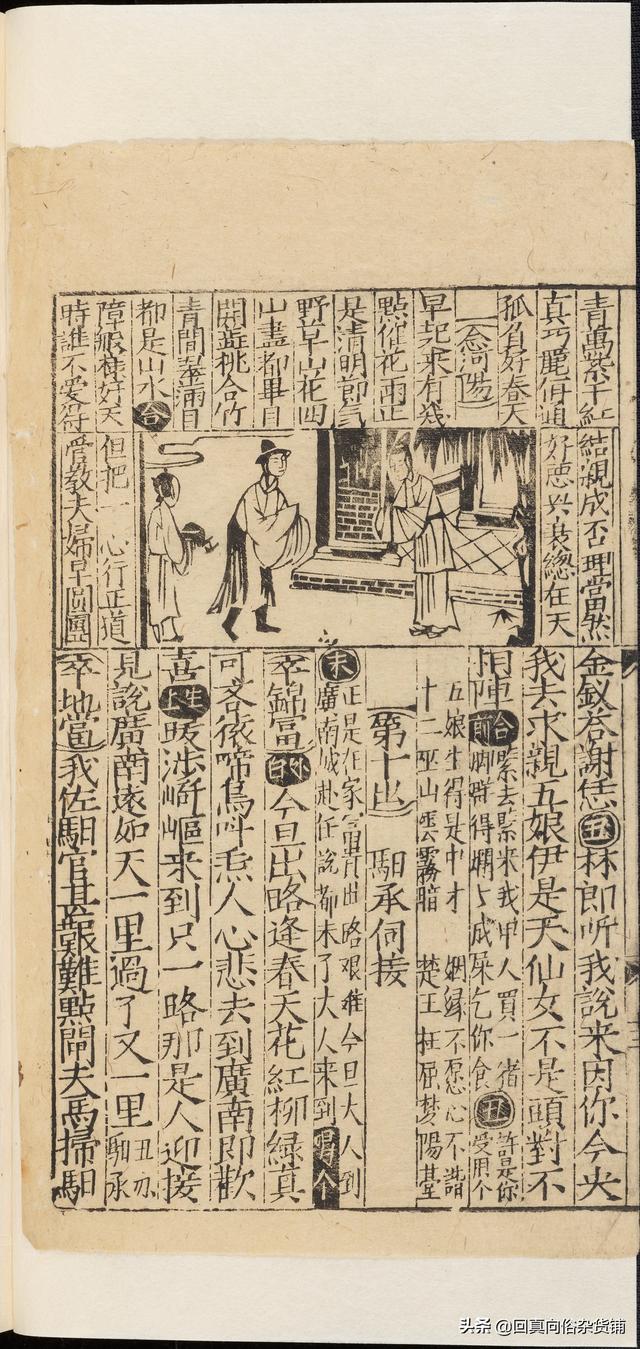 青萬紫千紅
真巧麗
孤負好春天
念河陽
早起來有幾
點催花雨正
是清明節氣
野草山花四
山盡都畢目
開遊桃合竹
青間翠滿目
都是山水合
好天
時誰不愛
結親成否理當然
好惡興衰總在天
但把一心行正道
管教夫婦早圓團
金釵答謝恁丑林郎听我說來因你今央
我去求親五娘伊是天仙女不是頭對不
相障合前緊去緊來我甲人買一猪
腳群得爛〻成屎乞你食丑許是你
受用个
五娘生得是中才 姻緣不愿心不諧
十二巫山雲霧暗 楚王枉屈梦陽臺
第十出 馹承伺接
末正是在家富貴出路艰难今旦大人到
廣南城赴任說都未了大人来到
卒錦當外白今旦出路逢春天花紅柳綠真
可吝依啼鳥叫焄人心悲去到廣南即歡
喜生上跋涉崎嶇来到只一路那是人迎接
見說廣南遠如天一里過了又一里丑
馹承
卒地當我佐馹官甚艱難點閘夫馬掃馹
头条 @回真向俗杂货铺